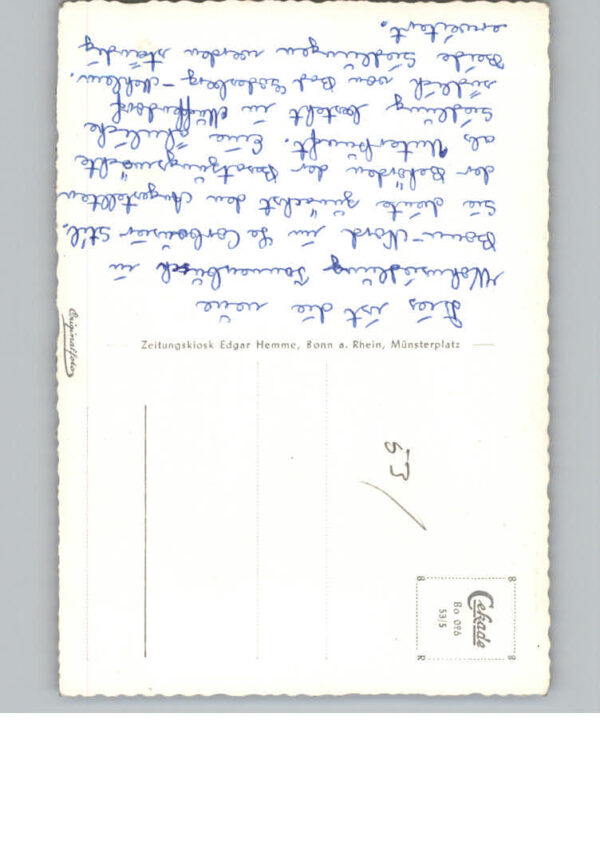 Dies ist die neue
Wohnsiedlung Tannenbusch in
Bonn-Nord im Le Corbousier-Stil.
Sie diente zunächst den Angestellten
der Behörden der Besatzungsmächte
als Unterkunft. Eine ähnliche
Siedlung besteht in Muffendorf
südlich von Bad Godesberg-Mehlem.
Beide Siedlungen werden ständig
erweitert.
Originalfoto
Zeitungskiosk Edgar Hemme, Bonn a. Rhein, Münsterplatz
53
Cekade
Bo 096
53/5
8 8
R 8